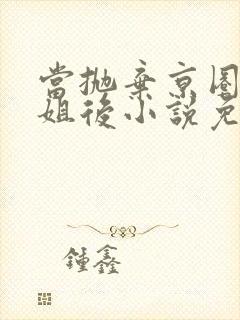 當拋棄京圈
姐後小說免
鍾鑫